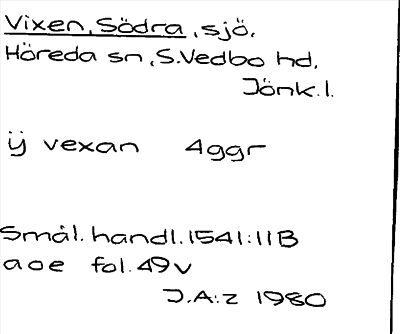 Vixen, Södra, sjö,
Höreda sn, S. Vedbo hd,
Jönk. l.
ÿ vexan 4ggr
Smål. handl. 1541:11B
aoe fol. 49v
J.A:z 1980